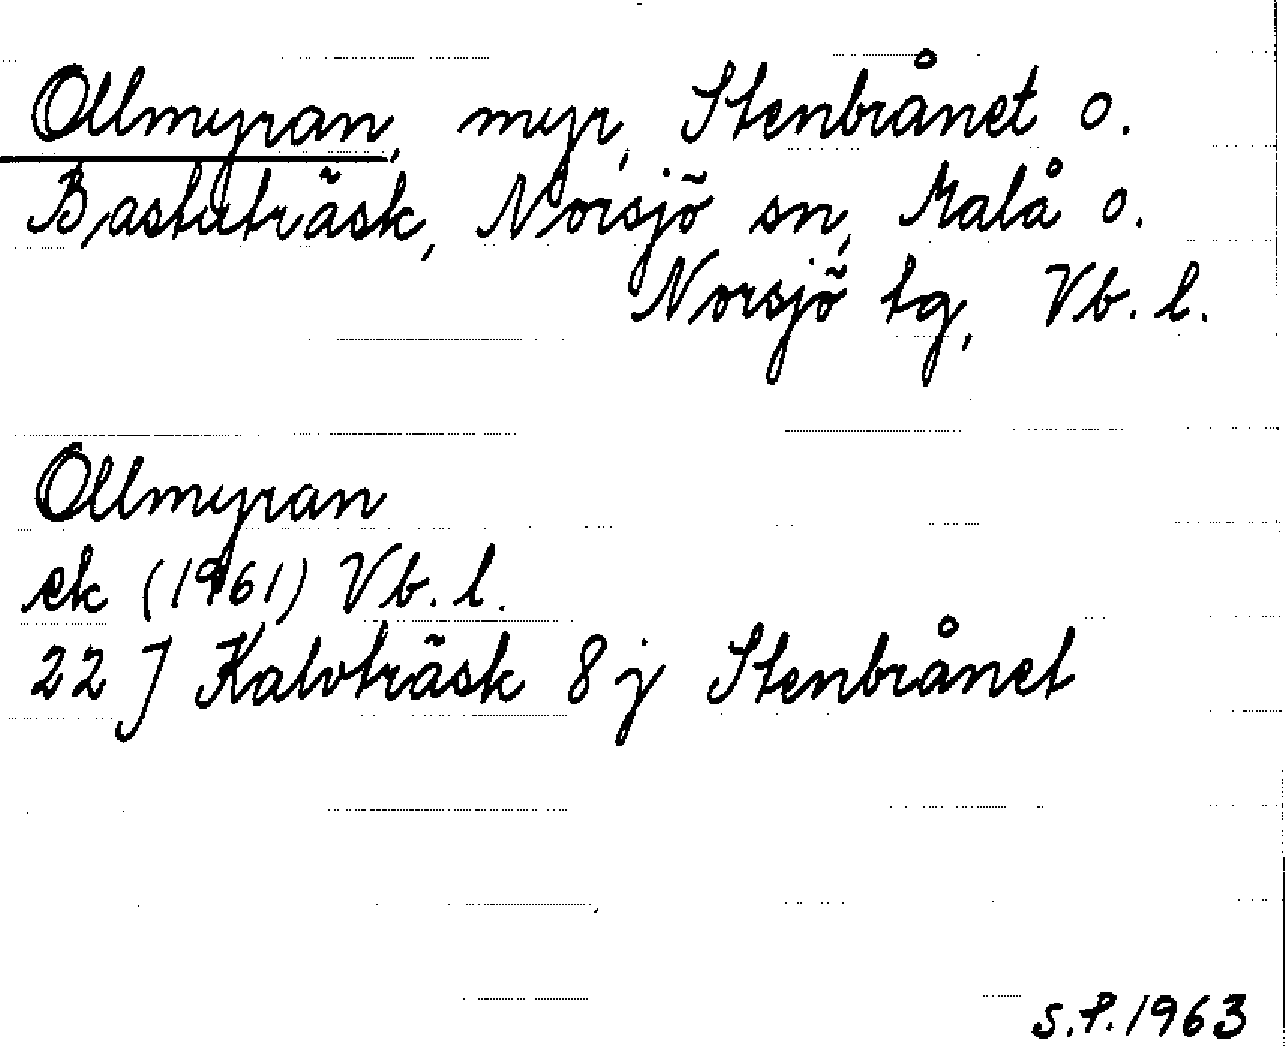 Ollmyran, myr, Stenbrånet o.
Bastuträsk, Norsjö sn, Malå o.
Norsjö tg, Vb. l.
Ollmyran
ek (1961) Vb. l.
22 J Kalvträsk 8 j Stenbrånet
S.P. 1963